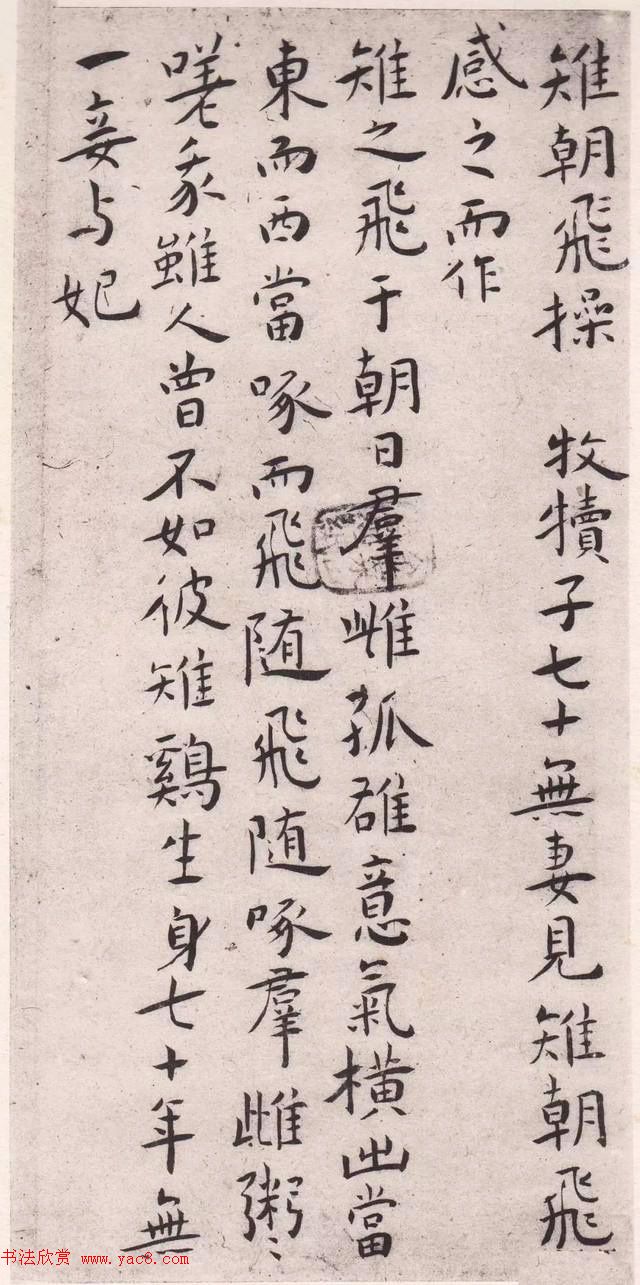 雉朝飛操 牧犢子七十無妻見雉朝飛
感之而作
雉之飛于朝日羣雌孤雄意氣橫出當
東而西當啄而飛随飛随啄羣雌粥〻
嗟余雖人曾不如彼雉鷄生身七十年無
一妾与妃
书法欣赏 www.yac8.com